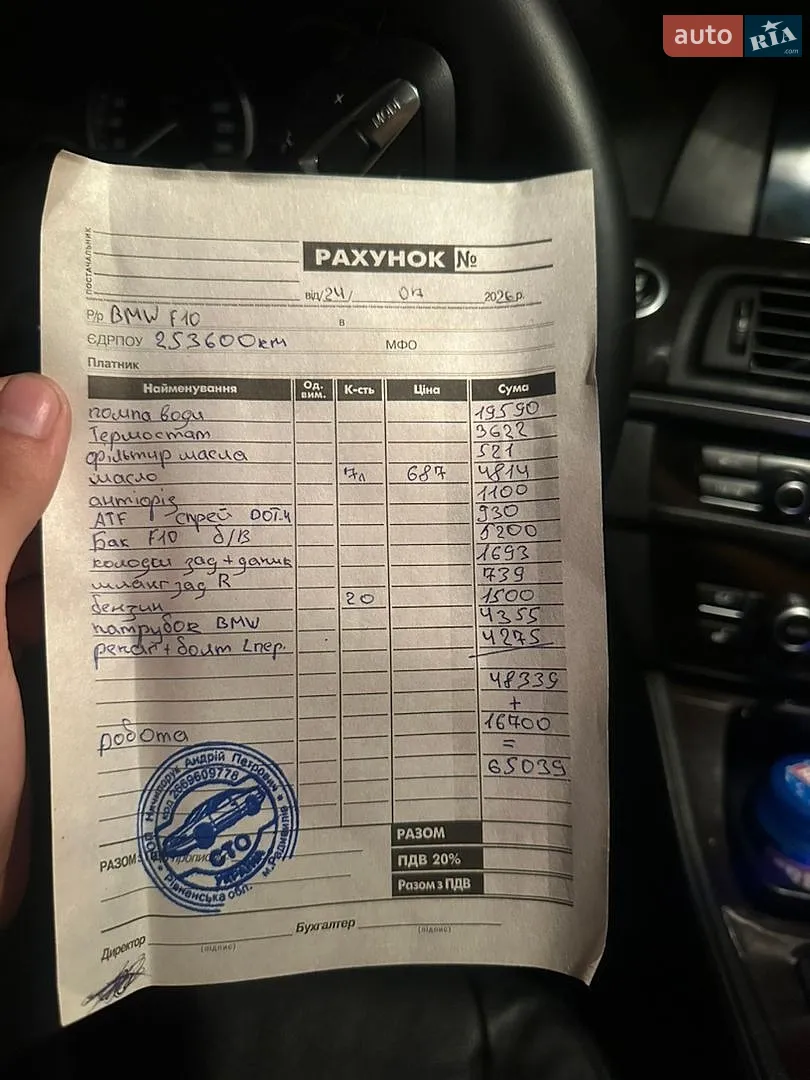 auto RIA .com
MODE
ПОСТАЧАЛЬНИК
РАХУНОК №
від 24/ 07 2026 р.
Р/р BMW F10 в
ЄДРПОУ 253600км МФО
Платник
Найменування Од. вим. К-сть Ціна Сума
помпа води 19590
Термостат 3622
фільтир масла 521
масло 7л 687 4814
антіфріз 1100
ATF спрей DOT-4 930
Бак F10 б/В 5200
колодки зад + датчик 1693
шланг зад R 739
бензин 20 1500
патрубок BMW 4355
+ болт L пер. 4275
48339
+
робота 16700
=
65039
РАЗОМ
ПДВ 20%
РАЗОМ з ПДВ
РАЗОМ з
ФОП Ничипорук Андрій Петрович
код 2669609778
СТО
УКРАЇНА
Рівненська обл. м.Радивилів
Директор (підпис) Бухгалтер (підпис)